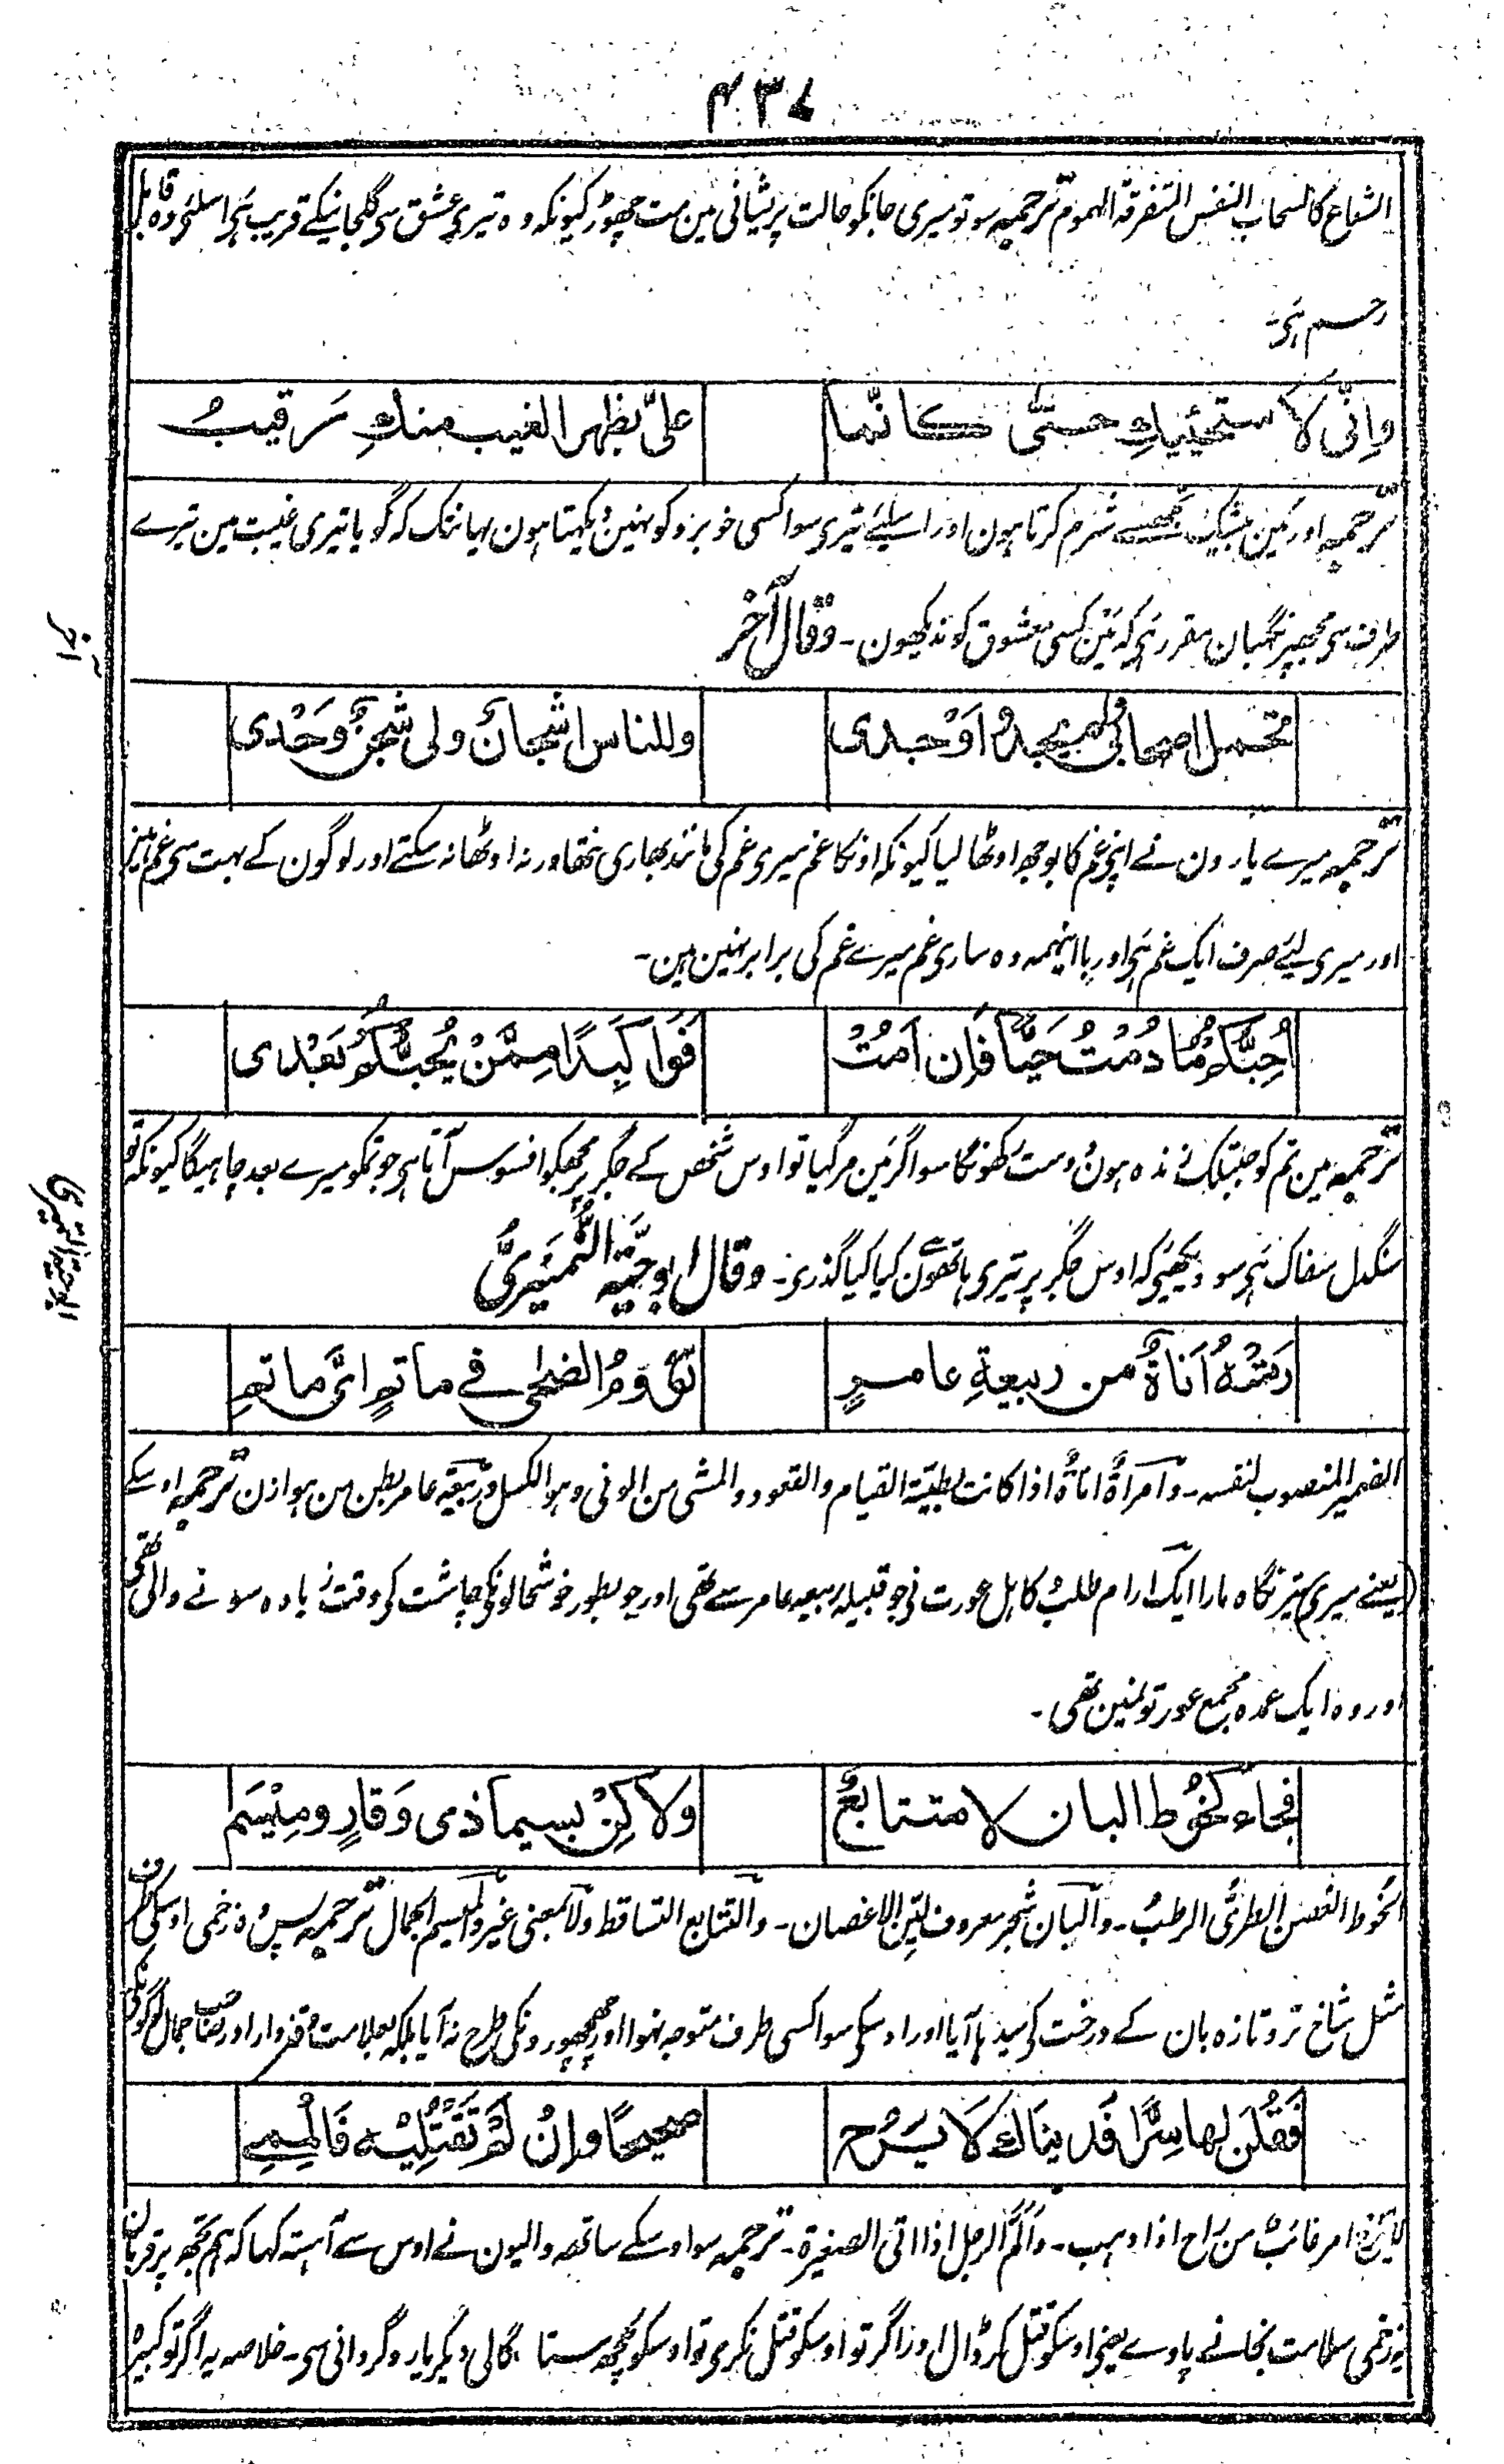 ۴۳۷
الشعاع کالسحاب النفس المتفرقۃ الہموم ترجمہ سو تو میری جانکو حالت پریشانی مین مت چھوڑ کیونکہ وہ تیری عشق سی گلجانیکے قریب ہی اسلئی وہ قابل
رحم ہی۔
وَاِنّی لَاَستحیِیكِ حتّی كانّما
علیّ بظهر الغیب منكِ رَقیبُ
ترجمہ اور مین بیشک تجھسے شرم کرتا ہون اور اسلیئے تیری سوا کسی خوبرو کو نہین دیکہتا ہون یہانتک کہ گویا تیری غیبت مین تیرے
طرف سی مجھپر نگہبان مقرر ہی کہ مین کسی معشوق کو ندیکھون۔ وقال آخر
آخر
تحمل اصحابی ولم یجدوا وَجْدی
وللناس اشجانٌ ولی شجنٌ وَحْدی
ترجمہ میرے یارون نے اپنی غم کا بوجھ اوٹھا لیا کیونکہ اونکا غم میری غم کی مانند بھاری نتھا ورنہ اوٹھا نہ سکتے اور لوگون کے بہت سی غم ہین
اور میری لئے صرف ایک غم ہی اور با اینہمہ وہ ساری غم میرے غم کی برابر نہین ہین۔
اُحِبُّكمُ مَا دُمْتُ حَیًّا فَاِن اَمُتْ
فَوَا كَبِدًا مِمَّنْ یُحِبُّكُمُ بَعْدی
ترجمہ مین تم کو جبتک زندہ ہون دوست رکھونگا سو اگر مین مر گیا تو اوس شخص کے جگر پر مجھکو افسوس آتا ہی جو تمکو میرے بعد چاہیگا کیونکہ تو
سنگدل سفاک ہی سو دیکھیی کہ اوس جگر پر تیری ہاتھون کیا کیا گذری۔ وقال ابو حیّة النُّمَیریُّ
ابو حیة النمیری
رَمَتْهُ اَناةٌ من ربیعةِ عامرٍ
نؤومُ الضحی فی ماتمٍ ایِّ ماتمِ
الضمیر المنصوب لنفسہ۔ وامراۃٌ اناۃٌ اذا کانت بطیئۃ القیام والقعود والمشی من الونی وہو الکسل وربیعۃ عامر بطن من ہوازن ترجمہ اوسکے
(یعنے میری) تیر نگاہ مارا ایک آرام طلب کاہل عورت نی جو قبیلہ ربیعہ عامر سے تھی اور جو بطور خوشحالونکی چاشت کی وقت زیادہ سونے والی تھی
اور وہ ایک عمدہ مجمع عورتونمین تھی۔
فجاء كخُوط البان لا متتابعٌ
ولا كِنْ بسیما ذی وَقارٍ ومِیْسَمِ
الخوط الغصن الطریّ الرطب۔ والبان شجر معروف لیّن الاغصان۔ والتتابع التساقط ولا بمعنی غیر والمیسم الجمال ترجمہ پس وہ زخمی اوسکی طرف
مثل شاخ تروتازہ بان کے درخت کی سیدھا آیا اور اوسکی سوا کسی طرف متوجہ نہوا اور چھچھورونکی طرح نہ آیا بلکہ بعلامت وقروار اور صاحب جمال لوگونکی
فَقُلْنَ لها سِرًّا فَدیناكِ لَا یَرُح
صحیحًا واِنْ لَمْ تَقْتُلِیْهِ فَالْمِمِی
لایرح امر غائب من راح اذا ذہب۔ والمّ الرجل اذا اتی الصغیرۃ۔ ترجمہ سو اوسکے ساتھ والیون نے اوس سے آہستہ کہا کہ ہم تجھ پر قربان
یہ زخمی سلامت نجانے پاوے یعنی اوسکو قتل کر ڈال اور اگر تو اوسکو قتل نکری تو اوسکو کچھ ستا گالی دیکر یا روگردانی سی۔ خلاصہ یہ اگر تو کبیرہ